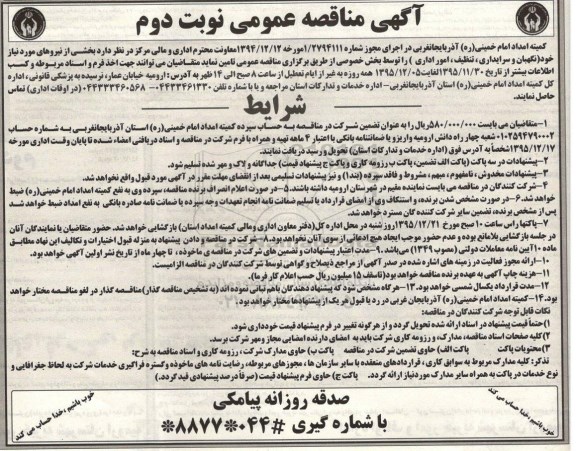 آگهی مناقصه عمومی نوبت دوم
کمیته امداد امام خمینی(ره) آذربایجانغربی در اجرای مجوز شماره ۱/۲۷۹۴۱۱۱مورخه ۱۳۹۴/۱۲/۱۲معاونت محترم اداری و مالی مرکز در نظر دارد بخشی از نیروهای مورد نیاز
خود(نگهبان و سرایداری ، تنظیف ، امور اداری ) را توسط بخش خصوصی از طریق برگزاری مناقصه عمومی تامین نماید متقاضیان می توانند جهت اخذ فرم و اسناد مربوطه و کسب
اطلاعات بیشتر از تاریخ ۱۳۹۵/۱۱/۳۰لغایت۱۳۹۵/۱۲/۰۵ همه روزه به غیر از ایام تعطیل از ساعت ۸ صبح الی ۱۴ ظهر به آدرس : ارومیه خیابان عمار، نرسیده به پزشکی قانونی، اداره
کل کمیته امداد امام خمینی(ره) استان آذربایجانغربی- اداره خدمات و تدارکات استان مراجعه و یا با شماره تلفن ۰۴۴۳۳۴۶۱۳۳۰ – ۰۴۴۳۳۴۶۰۵۶۸ (در اوقات اداری) تماس
حاصل نمایند.
شرایط
۱-متقاضیان می بایست ۵۸۰/۰۰۰/۰۰۰ریال را به عنوان تضمین شرکت در مناقصه به حساب سپرده کمیته امداد امام خمینی (ره) استان آذربایجانغربی به شماره حساب
۰۱۰۲۵۹۴۷۹۰۰۲ شعبه چهار راه دانش ارومیه واریز و یا ضمانتنامه بانکی با اعتبار ۴ ماهه تهیه و همراه با فرم شرکت در مناقصه و اسناد دریافتی امضاء شده تا پایان وقت اداری مورخه
۱۳۹۵/۱۲/۱۷شخصاً به آدرس فوق (اداره خدمات و تدارکات استان) تحویل و رسید دریافت نمایند.
۲-پیشنهادات در سه پاکت (پاکت الف تضمین، پاکت ب رزومه کاری و پاکت ج پیشنهاد قیمت) جداگانه و لاک و مهر شده تسلیم شود.
۳-پیشنهادات مخدوش ، نامفهوم ، مبهم، مشروط و فاقد سپرده (بند۱) و نیز پیشنهادات تسلیمی بعد از انقضای مهلت مقرر در آگهی مورد قبول واقع نخواهد شد.
۴-شرکت کنندگان در مناقصه می بایست نماینده مقیم در شهرستان ارومیه داشته باشند. ۵-در صورت اعلام انصراف برنده مناقصه، سپرده وی به نفع کمیته امداد امام خمینی(ره) ضبط
خواهد شد. ۶-در صورت مشخص شدن برنده، و استنکاف وی از امضای قرارداد یا تسلیم ضمانت نامه انجام تعهدات وجه سپرده یا ضمانت نامه صادره بانکی به نفع امداد ضبط خواهد شد
پس از مشخص برنده، تضمین سایر شرکت کننده گان مسترد خواهد شد.
۷-پاکتها راس ساعت ۱۰ صبح مورخ ۱۳۹۵/۱۲/۲۱روز شنبه در محل اداره کل(دفتر معاون اداری و مالی کمیته امداد استان) بازگشایی خواهد شد. حضور متقاضیان یا نمایندگان آنان
در جلسه بازگشایی بلامانع بوده و عدم حضور موجب ایجاد هیچ ادعائی از سوی آنان نخواهد بود.۸-شرکت در مناقصه و دادن پیشنهاد به منزله قبول اختیارات و تکالیف این نهاد مطابق
ماده ۱۰ آیین نامه معاملات دولتی (مصوب ۱۳۴۹) می باشد.۹-مدت اعتبار پیشنهادات و تضمین های شرکت در مناقصه ی ماخوذه ، تا چهار ماه از تاریخ نشر اولین آگهی خواهد بود.
۱۰-ارائه مجوز فعالیت در زمینه های اشاره شده در صدر آگهی از مراجع ذیصلاح و گواهی توسط شرکت کنندگان در مناقصه الزامیست.
۱۱-هزینه چاپ آگهی به عهده برنده مناقصه خواهد بود(تاسقف ۱۵ میلیون ریال حسب اعلام کار فرما).
۱۲-مدت قرارداد یکسال شمسی خواهد بود.۱۳-هرگاه مشخص شود که پیشنهاد دهندگان باهم تبانی نموده اند (به تشخیص مناقصه گذار)مناقصه گذار در لغو مناقصه مختار خواهد
بود.۱۴-کمیته امداد امام خمینی(ره) آذربایجان غربی در رد یا قبول هر یک از پیشنهادها مختار خواهد بود.
نکات قابل توجه شرکت کنندگان در مناقصه:
۱)حتماً قیمت پیشنهاد در اسناد ارائه شده تحویل گردد و از هرگونه تغییر در فرم پیشنهاد قیمت خودداری شود.
۲)کلیه صفحات اسناد مناقصه، مدارک، و رزومه کاری شرکت باید به امضای دارنده امضایی مجاز ومهر شرکت برسد.
۳)محتویات پاکت پاکت الف) حاوی تضمین شرکت در مناقصه پاکت ب) حاوی مدارک شرکت ، رزومه کاری و اسناد مناقصه به شرح:
تذکر: کلیه مدارک مربوط به سوابق کاری ، قراردادهای منعقده با سایر سازمان ها ، مجوزهای مربوطه، رضایت نامه های ماخوذه وگستره فراگیری خدمات شرکت به لحاظ جغرافیایی و
نوع خدمات در پاکت به همراه سایر مدارک موردنیاز ارائه گردد. پاکت ج) حاوی فرم پیشنهاد قیمت (صرفاً درصد پیشنهادی قید گردد.)
صدقه روزانه پیامکی
با شماره گیری #۰۴۴*۸۸۷۷*
خوب باشیم ،خدا حساب می کند
خوب باشیم ،خدا حساب می کند